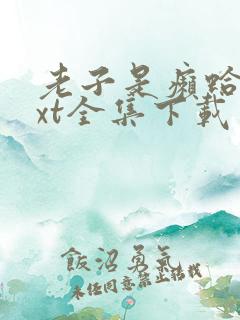 老子是癞蛤
xt全集下载
飯沼勇気
未经同意禁止转载